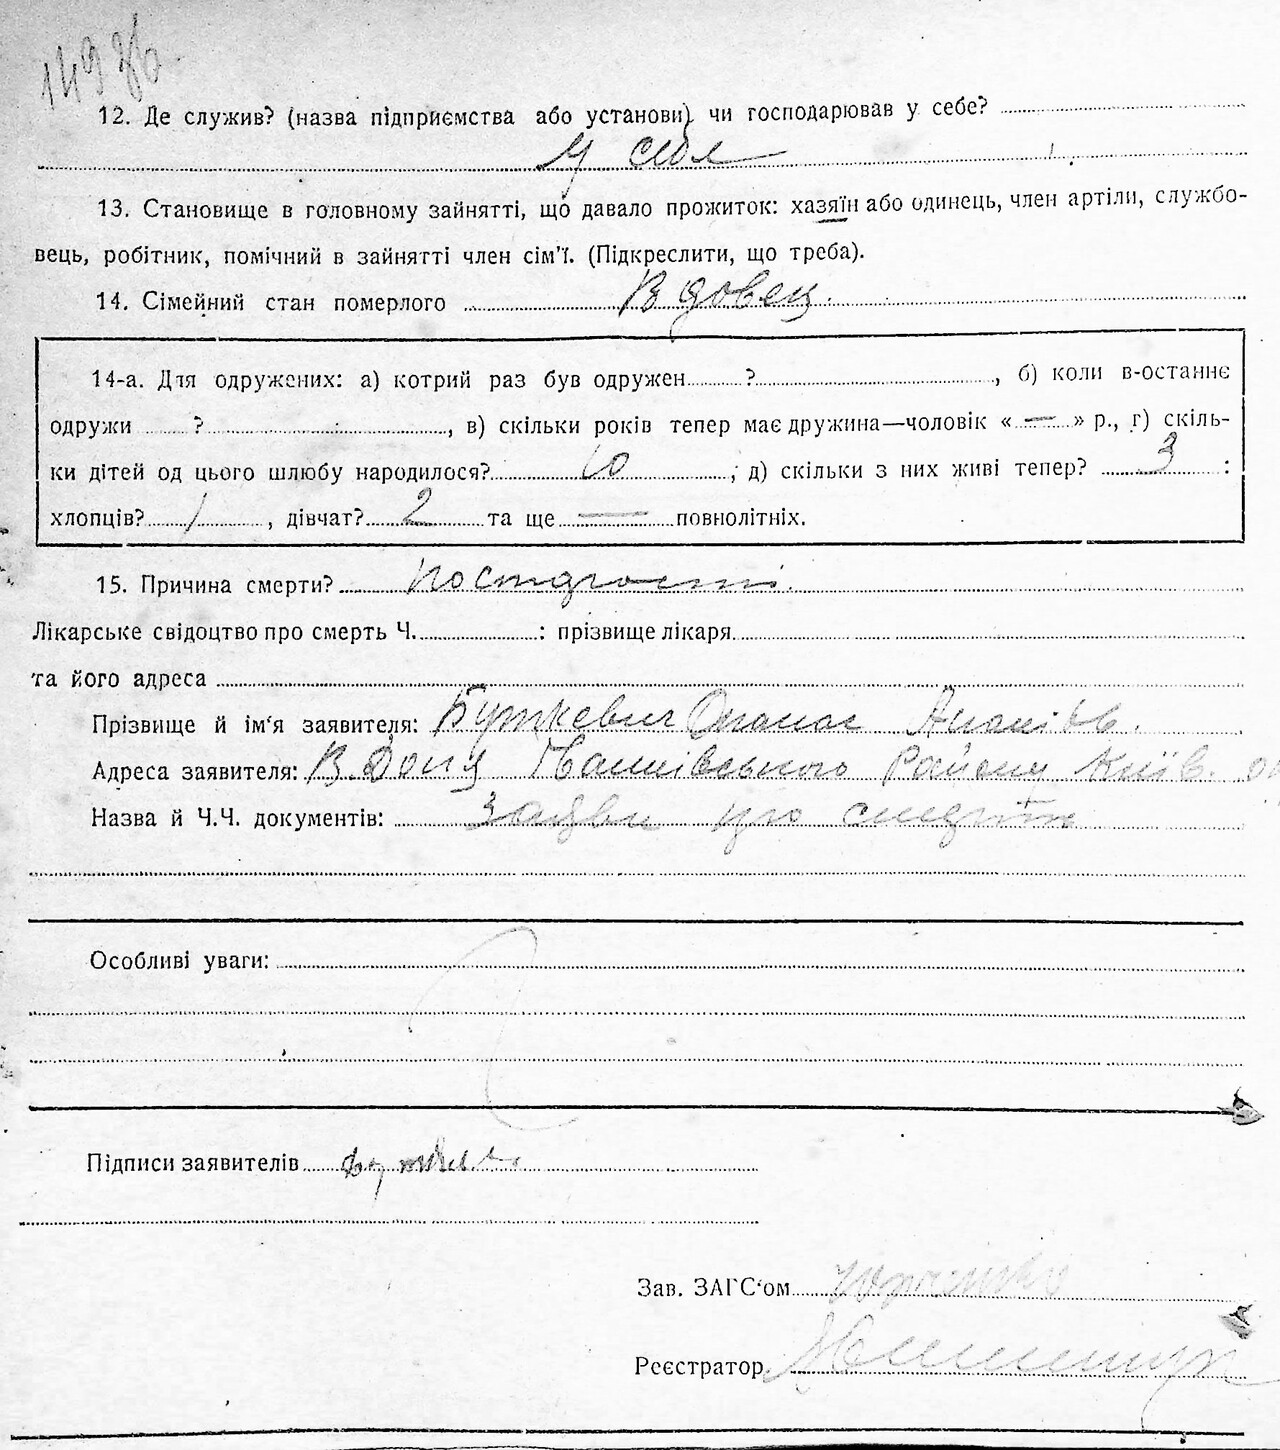 149зв.
12. Де служив? (назва підприємства або установи) чи господарював у себе?
у себе
13. Становище в головному зайнятті, що давало прожиток: хазяїн або одинець, член артіли, службо-
вець, робітник, помічний в зайнятті член сім'ї. (Підкреслити, що треба).
14. Сімейний стан померлого Вдовец.
14-а. Для одружених: а) котрий раз був одружен ? , б) коли в-останнє
одружи ? , в) скільки років тепер має дружина—чоловік «—» р., г) скіль-
ки дітей од цього шлюбу народилося? 10 ; д) скільки з них живі тепер? 3 :
хлопців? 1 , дівчат? 2 та ще — повнолітніх.
15. Причина смерти?
Лікарське свідоцтво про смерть Ч. : прізвище лікаря
та його адреса
Прізвище й ім'я заявителя: Буткевич Опанас
Адреса заявителя: Району Київ.
Назва й Ч.Ч. документів: про смерть
Особливі уваги:
Підписи заявителів
Зав. ЗАГС'ом
Реєстратор